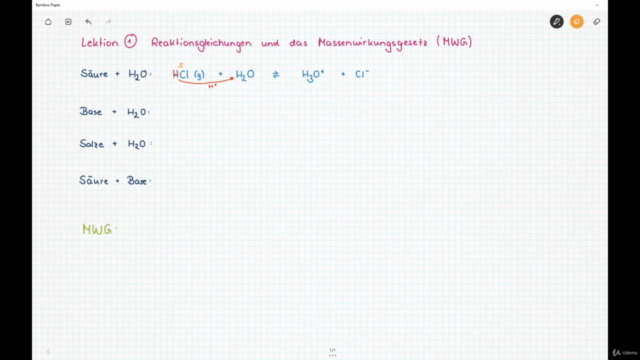 Bamboo Paper
Lektion ① Reaktionsgleichungen und das Massenwirkungsgesetz (MWG)
S
Säure + H₂O: HCl (g) + H₂O ⇌ H₃O⁺ + Cl⁻
H⁺
Base + H₂O:
Salze + H₂O:
Säure + Base:
MWG:
1/1
Udemy